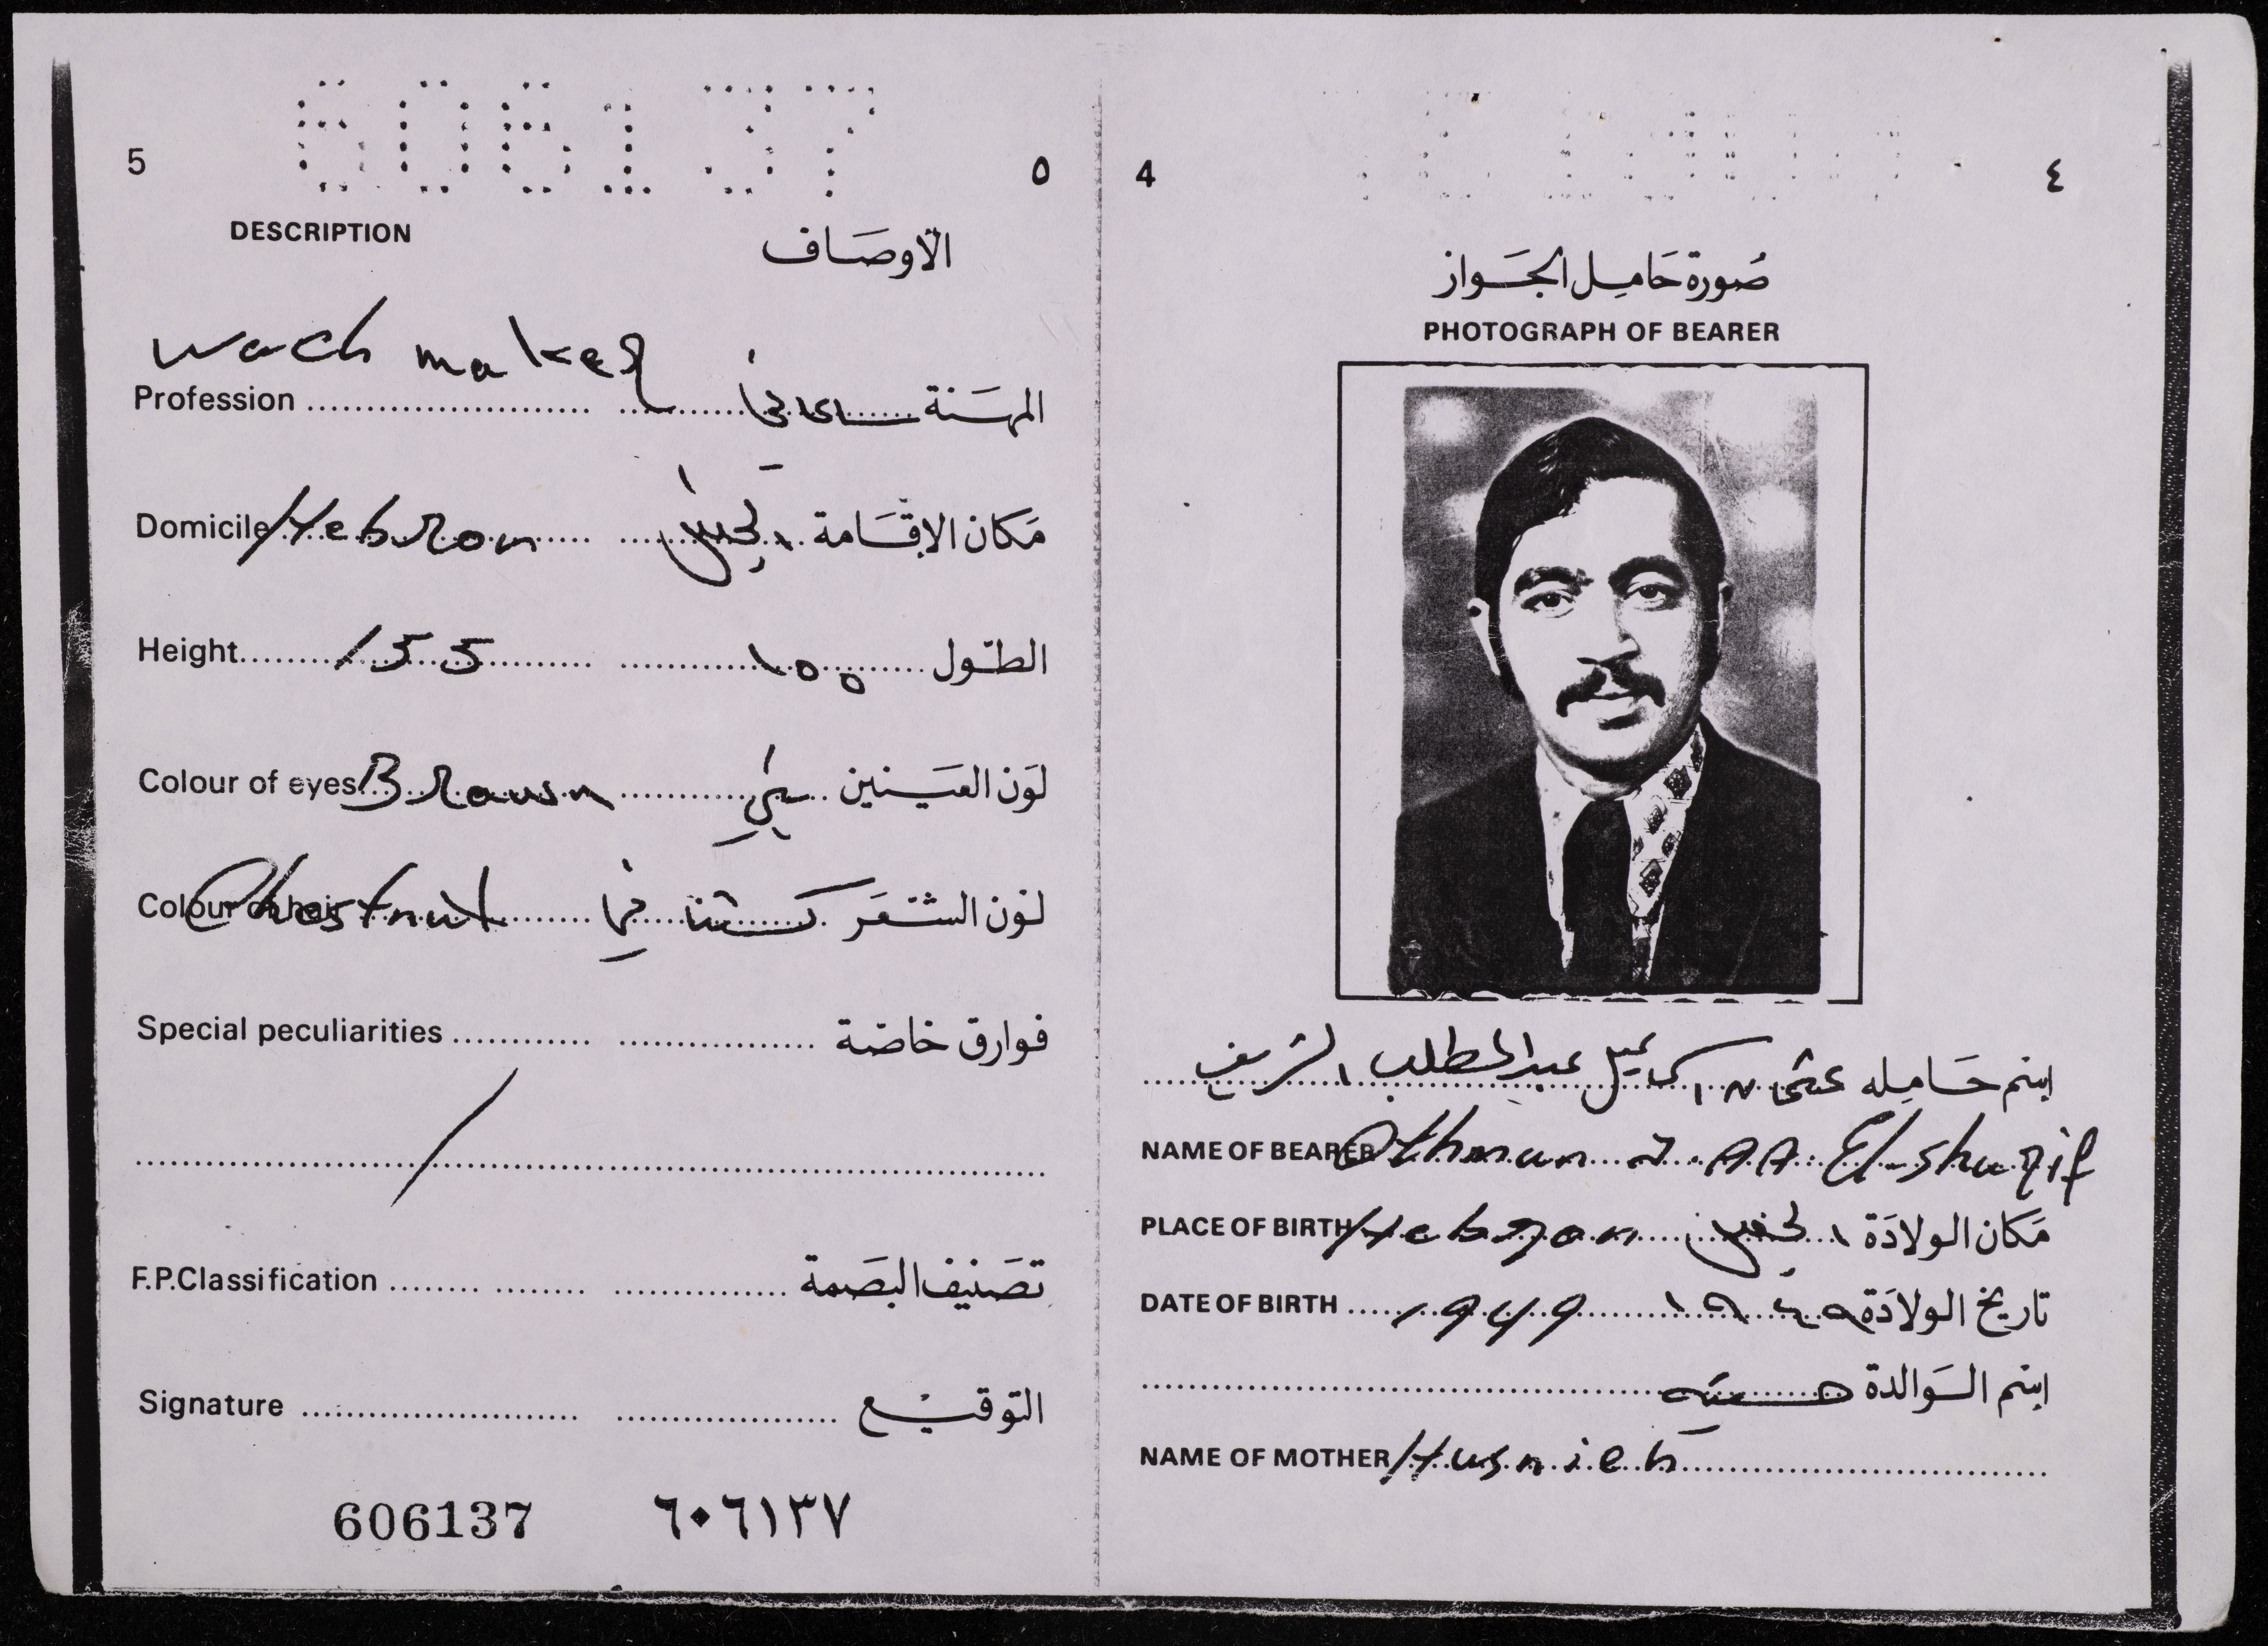 606137
5 ٥
DESCRIPTION الأوصَاف
wach maker
Profession المهَنة ساعاتي
Domicile Hebron مَكان الإقَامة الخليل
Height 155 الطّول ١٥٥
Colour of eyes Brawn لَون العَينين بني
Colour of hair Chestnut لَون الشّعَر كستنائي
Special peculiarities فوارق خاصّة
/
F.P.Classification تصَنيف البصَمة
Signature التوقيْع
606137 ٦٠٦١٣٧
4 ٤
صُورة حَامِل الجَواز
PHOTOGRAPH OF BEARER
اِسْم حَامِله عثمان اسماعيل عبد المطلب الشريف
NAME OF BEARER Othman I. A.A. El-sharif
PLACE OF BIRTH Hebron مَكان الولادَة الخليل
DATE OF BIRTH 1949 تاريخ الولادَة ١٩٤٩
اِسْم الوَالدة حسنيه
NAME OF MOTHER Husnieh